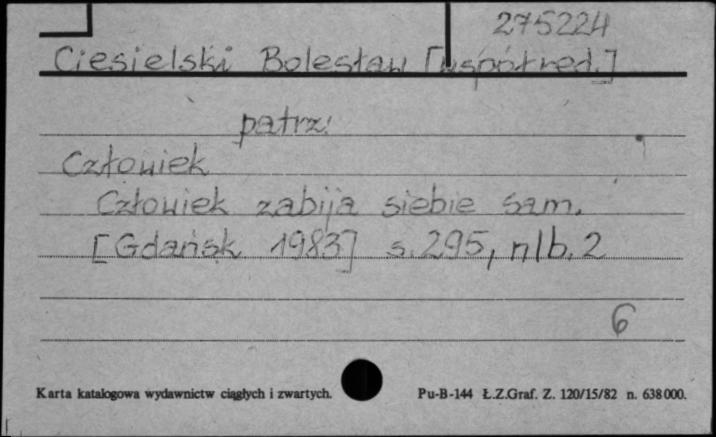 275224
Ciesielski Bolesław [współred.]
patrz:
Człowiek
Człowiek zabija siebie sam.
[Gdańsk 1983] s. 295, nlb. 2
6
Karta katalogowa wydawnictw ciągłych i zwartych. Pu-B-144 Ł.Z.Graf. Z. 120/15/82 n. 638000.